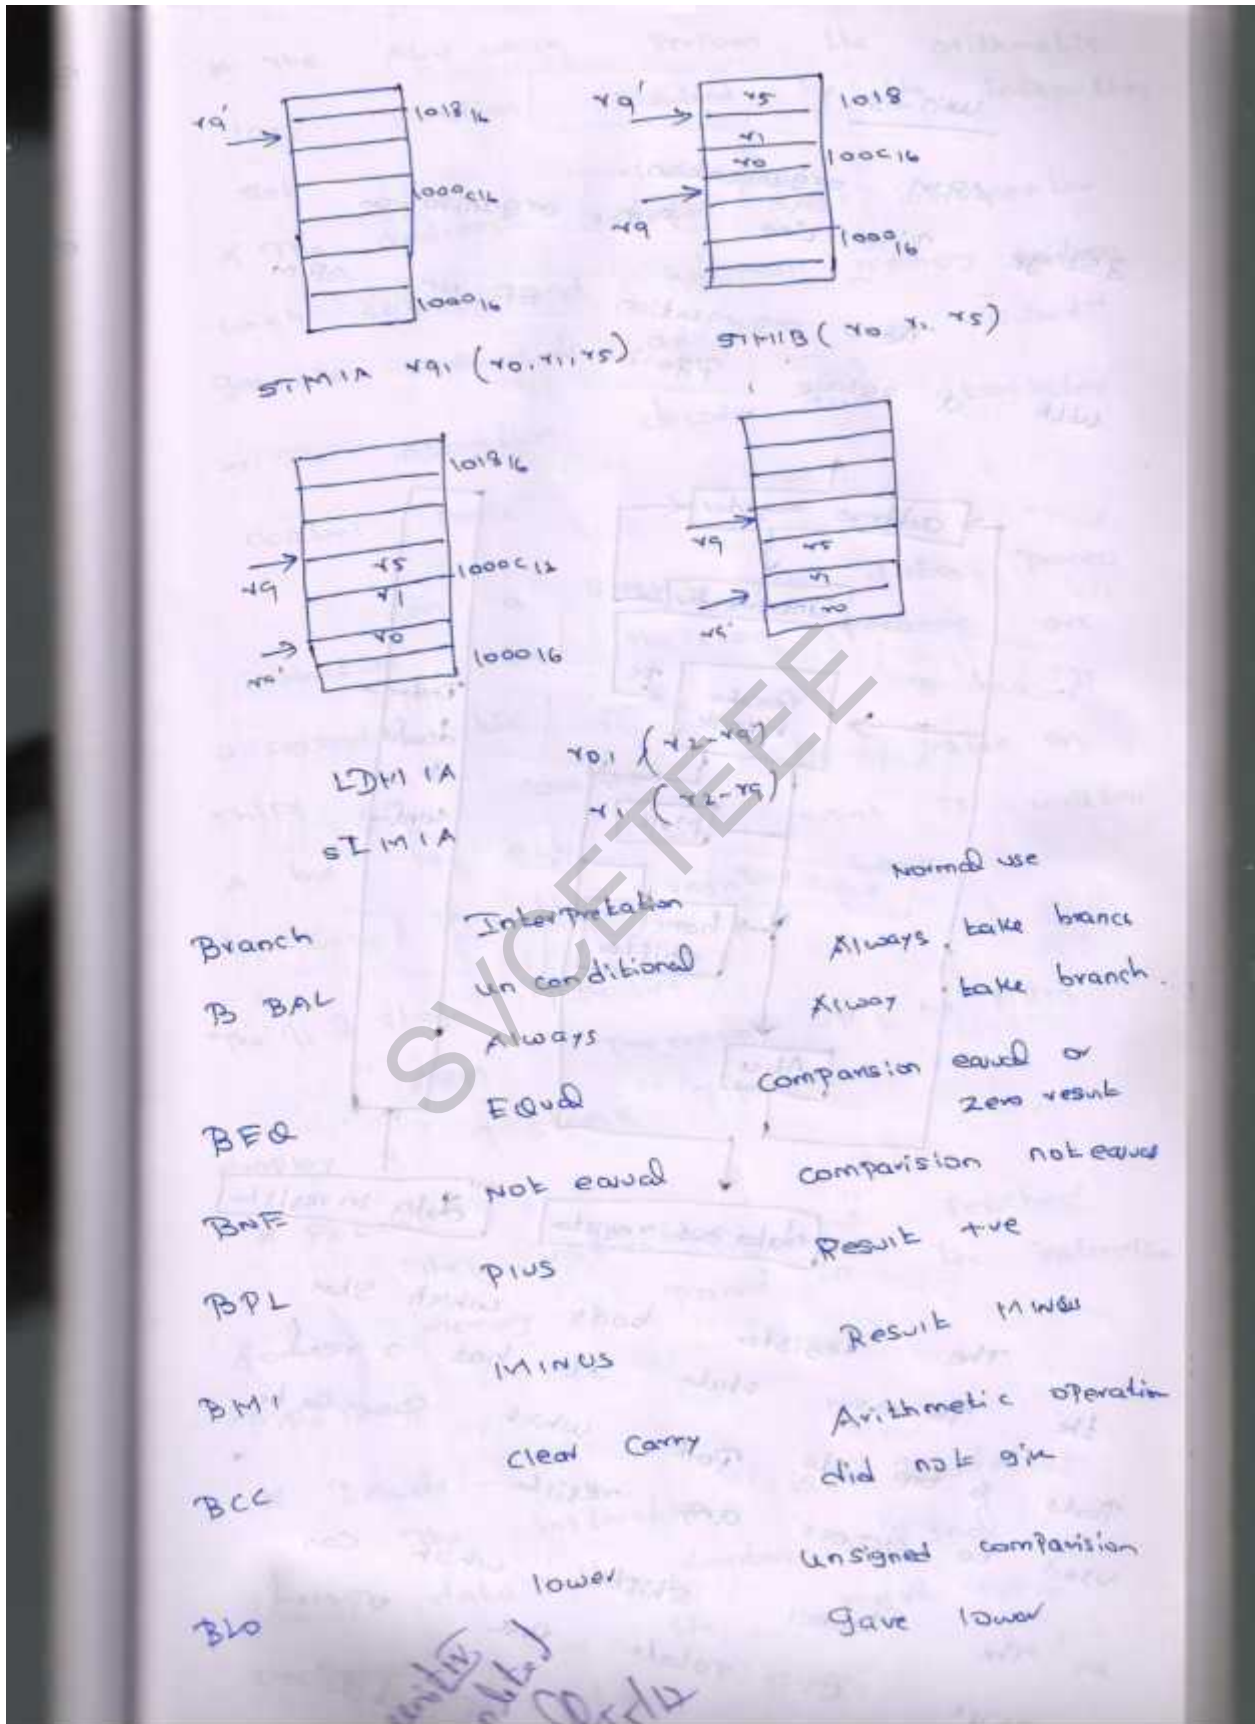 r9' 1018 16
100c16
1000 16
STM1A r9, (r0, r1, r5)
r9' r5 1018
r1
r0 100c 16
r9
1000 16
STMIB ( r0, r1, r5)
1018 16
r9 r5 1000c 16
r1
r9' r0
1000 16
r9 r5
r1
r9' r0
LDM IA r0, (r2-r9)
STMIA r1 (r2-r9)
Branch Interpretation Normal use
B BAL un conditional Always take brancs
Always Alway take branch.
BEQ Equal Comparision equal or
zero result
BNE Not equal comparision not equal
BPL PlUS Result +ve
BMI MINUS Result Minus
BCC Clear Carry Arithmetic operation
did not give
BLO lower unsigned comparision
gave lower
SVCETEEE